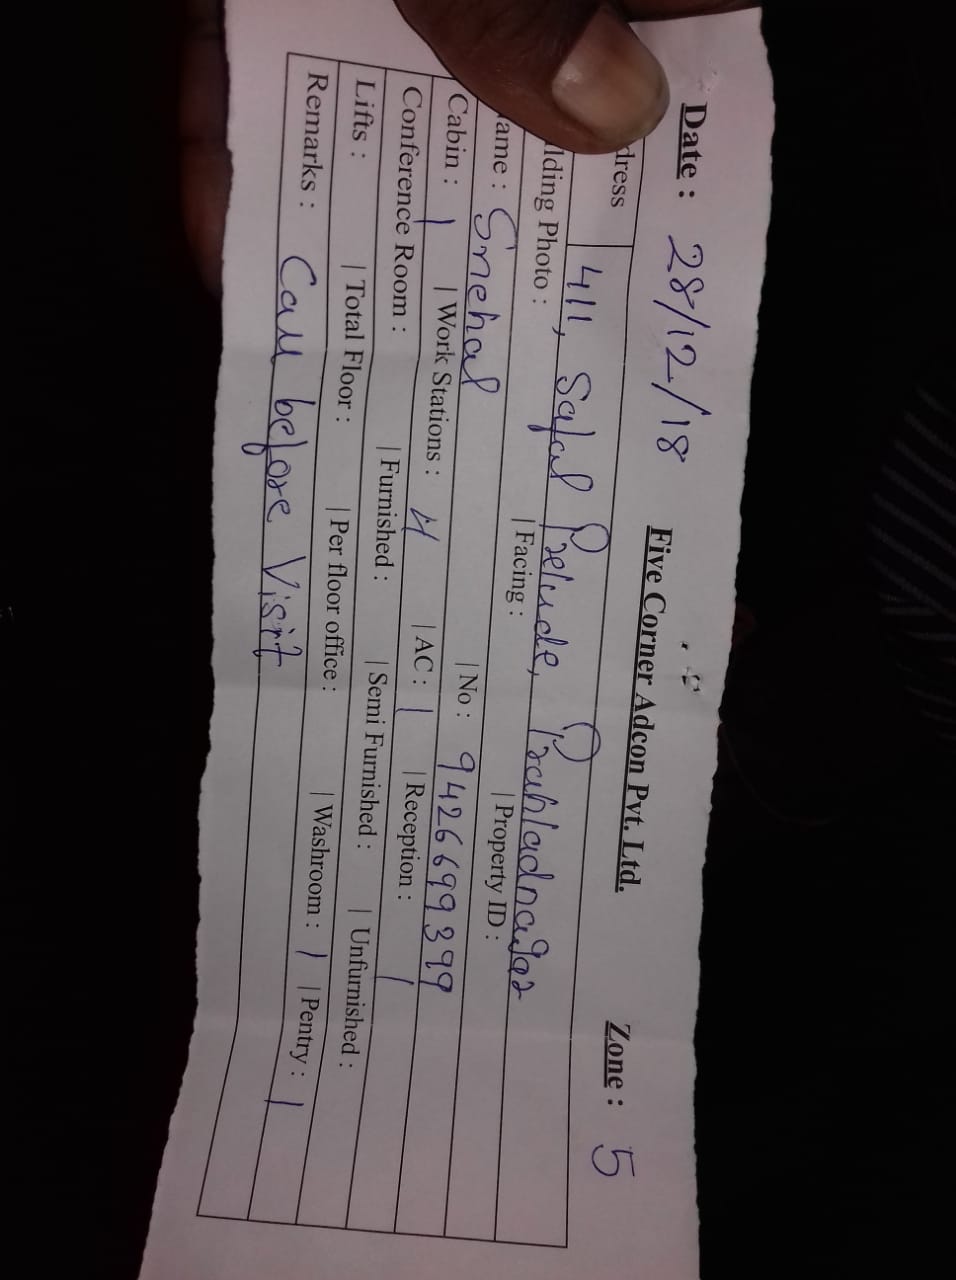 Date : 28/12/18 Five Corner Adcon Pvt. Ltd. Zone : 5
dress 411, Safal Prelude, Prahladnagar
lding Photo : | Facing : | Property ID :
ame : Snehal | No : 9426699399
Cabin : 1 | Work Stations : 4 | AC : 1 | Reception : 1
Conference Room : | Furnished : | Semi Furnished : | Unfurnished :
Lifts : | Total Floor : | Per floor office : | Washroom : 1 | Pentry : 1
Remarks : Call before Visit